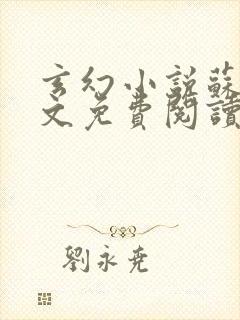 玄幻小說蘇
文免費閱讀
劉永堯